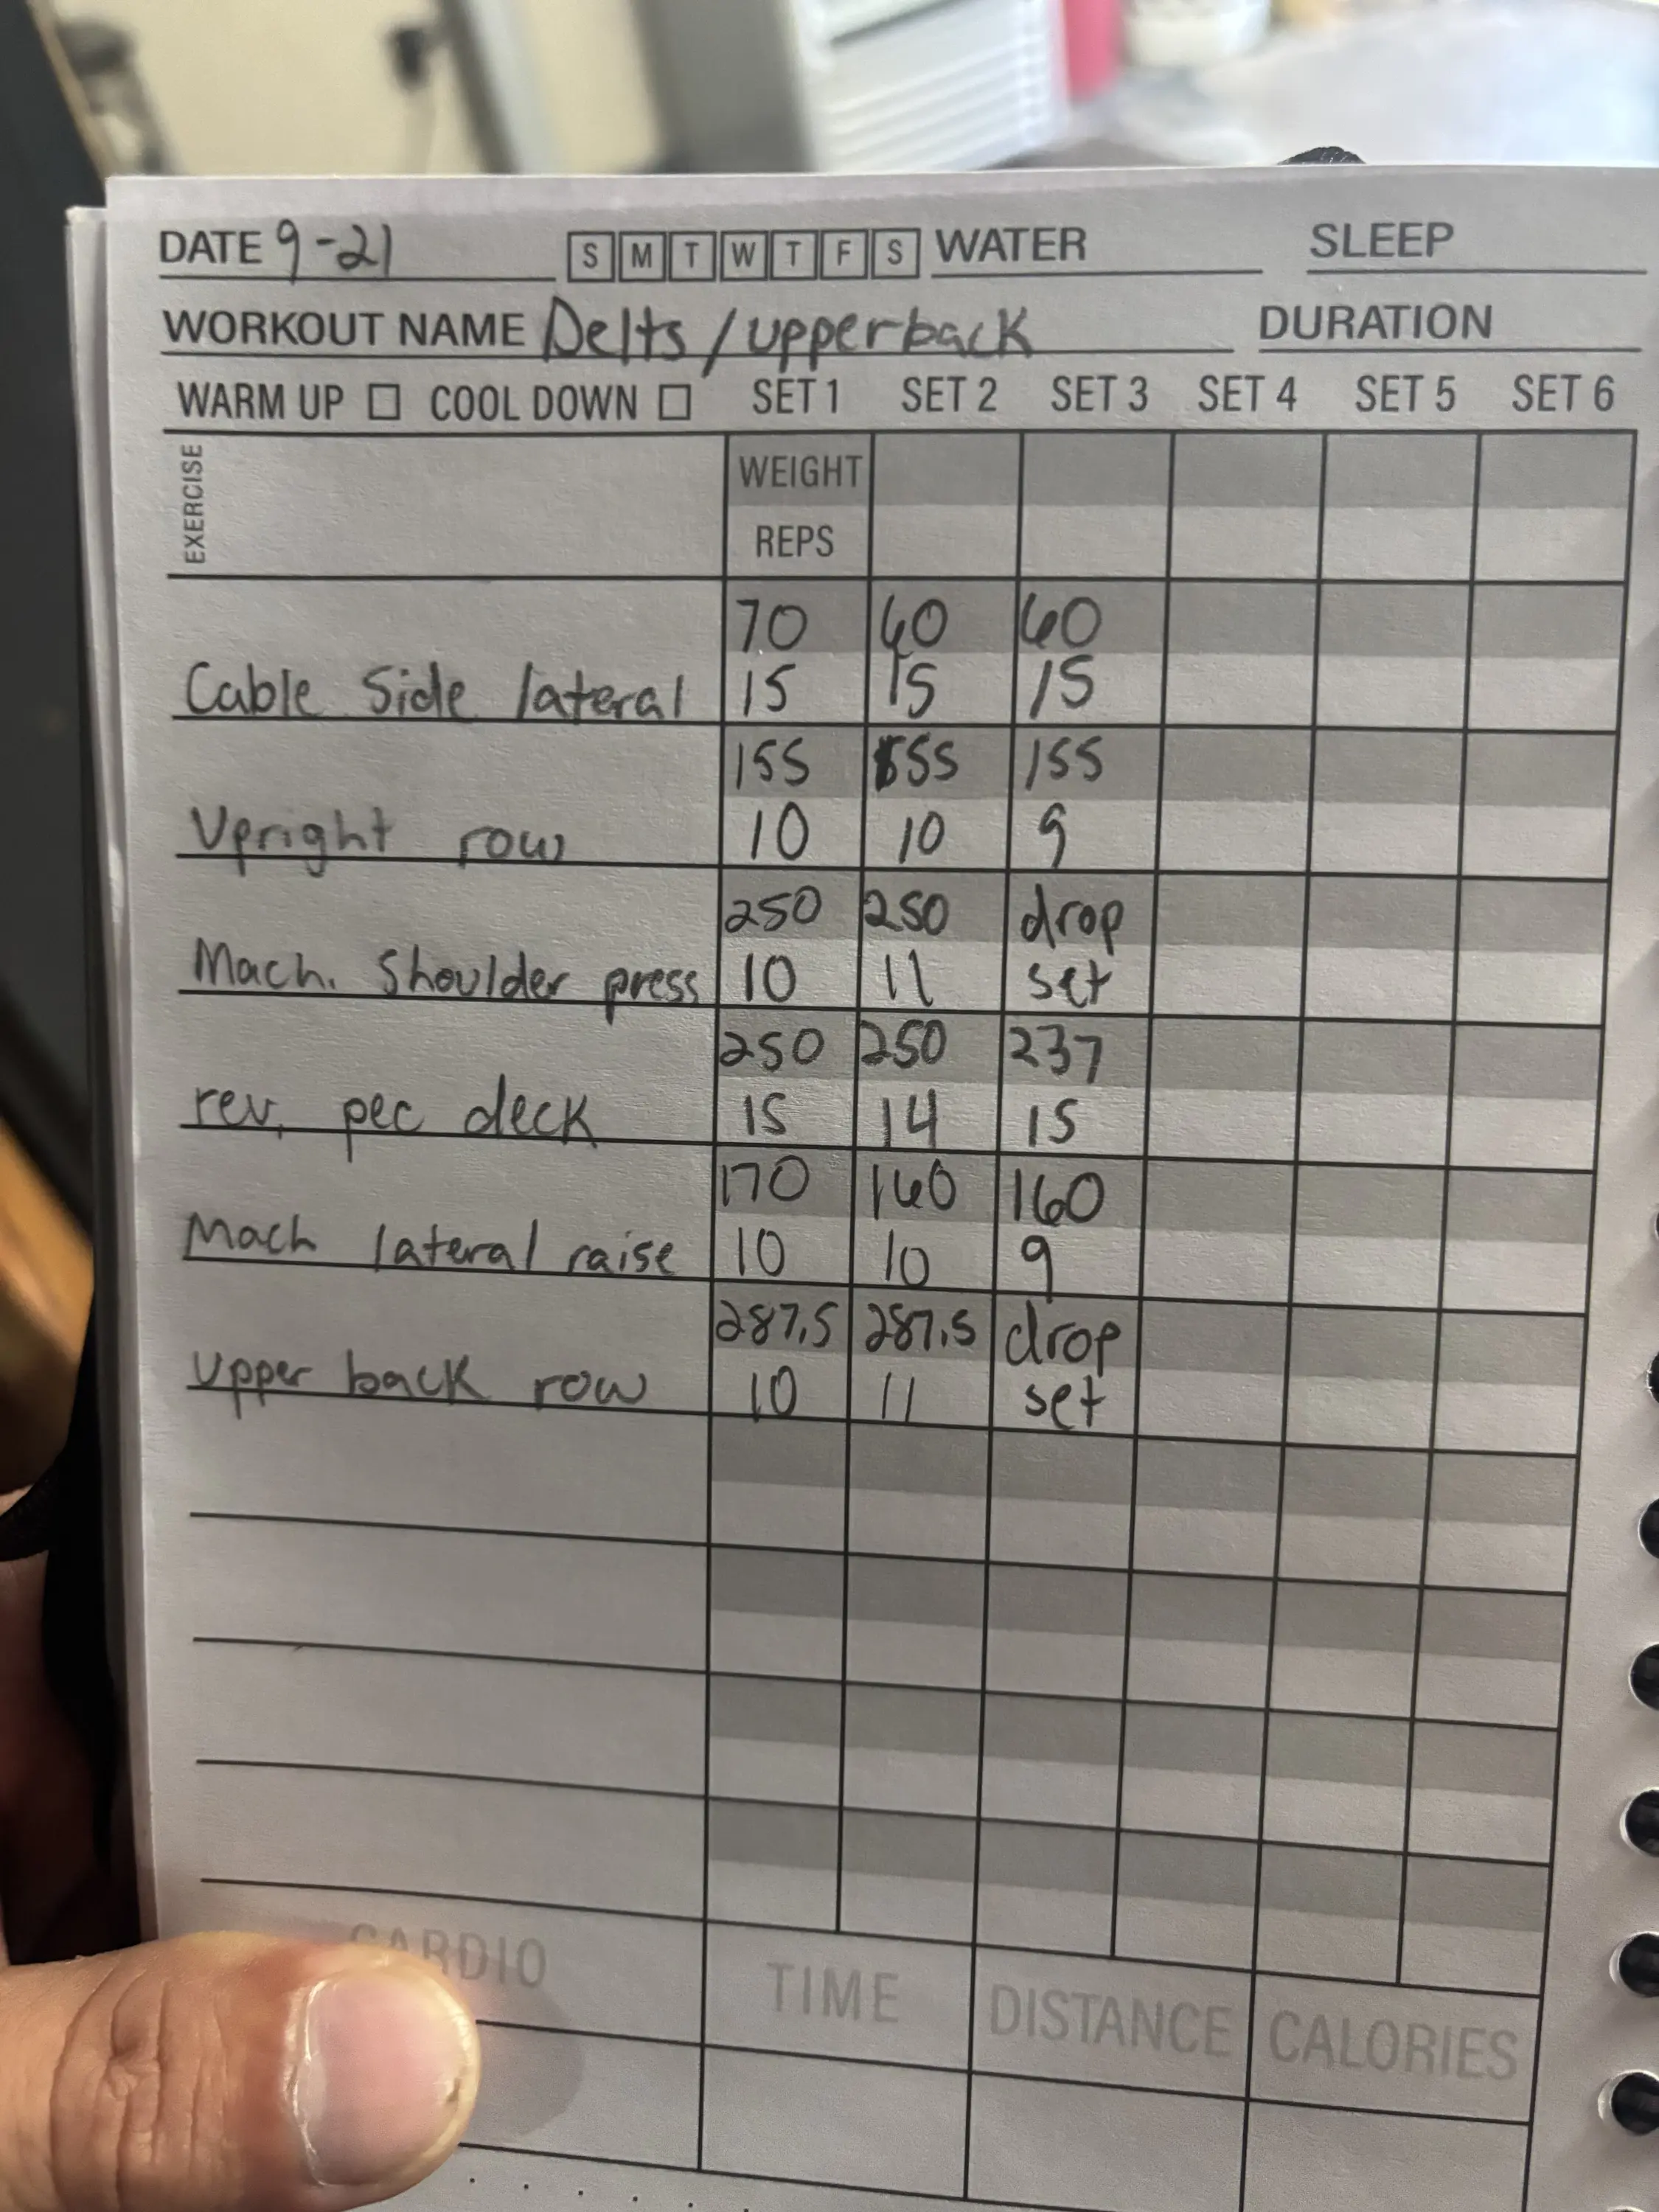 DATE 9-21 S M T W T F S WATER SLEEP
WORKOUT NAME Delts / upperback DURATION
WARM UP COOL DOWN SET 1 SET 2 SET 3 SET 4 SET 5 SET 6
EXERCISE
WEIGHT
REPS
70 60 60
Cable Side lateral 15 15 15
155 155 155
Upright row 10 10 9
250 250 drop
Mach. Shoulder press 10 11 set
250 250 237
rev. pec deck 15 14 15
170 160 160
Mach lateral raise 10 10 9
287.5 287.5 drop
Upper back row 10 11 set
CARDIO TIME DISTANCE CALORIES